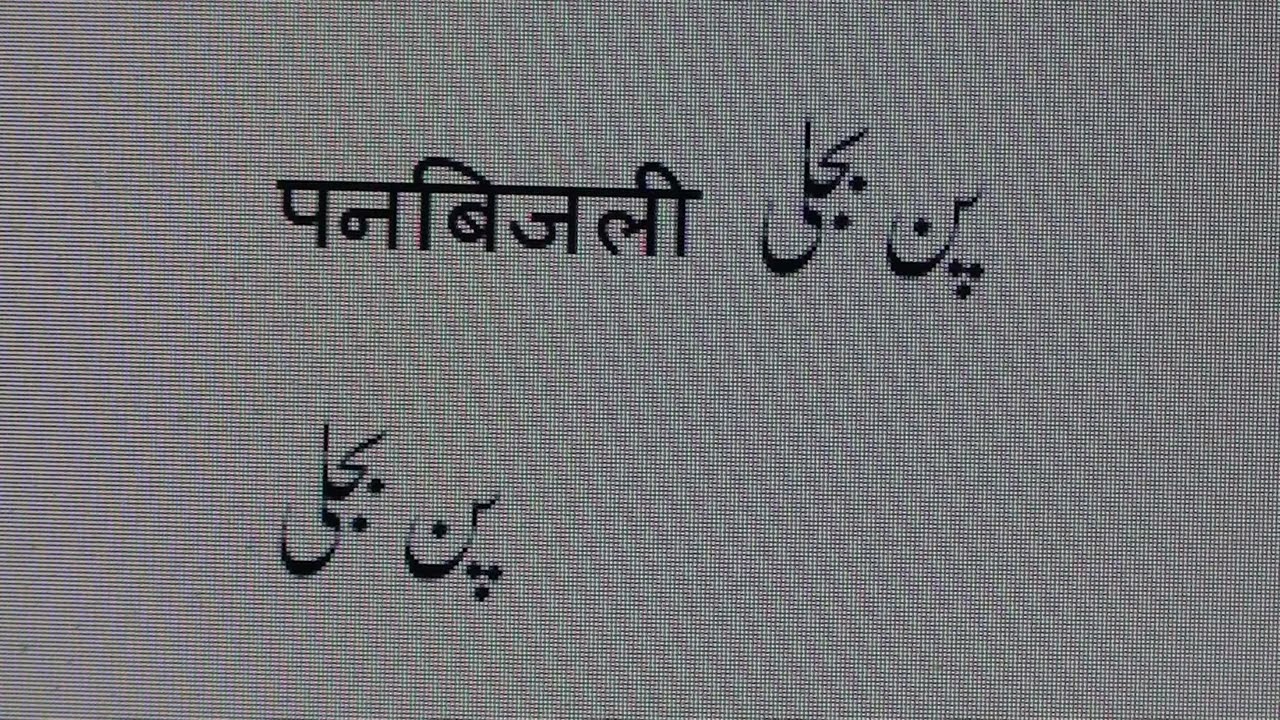 पनबिजली پن بجلی
پن بجلی